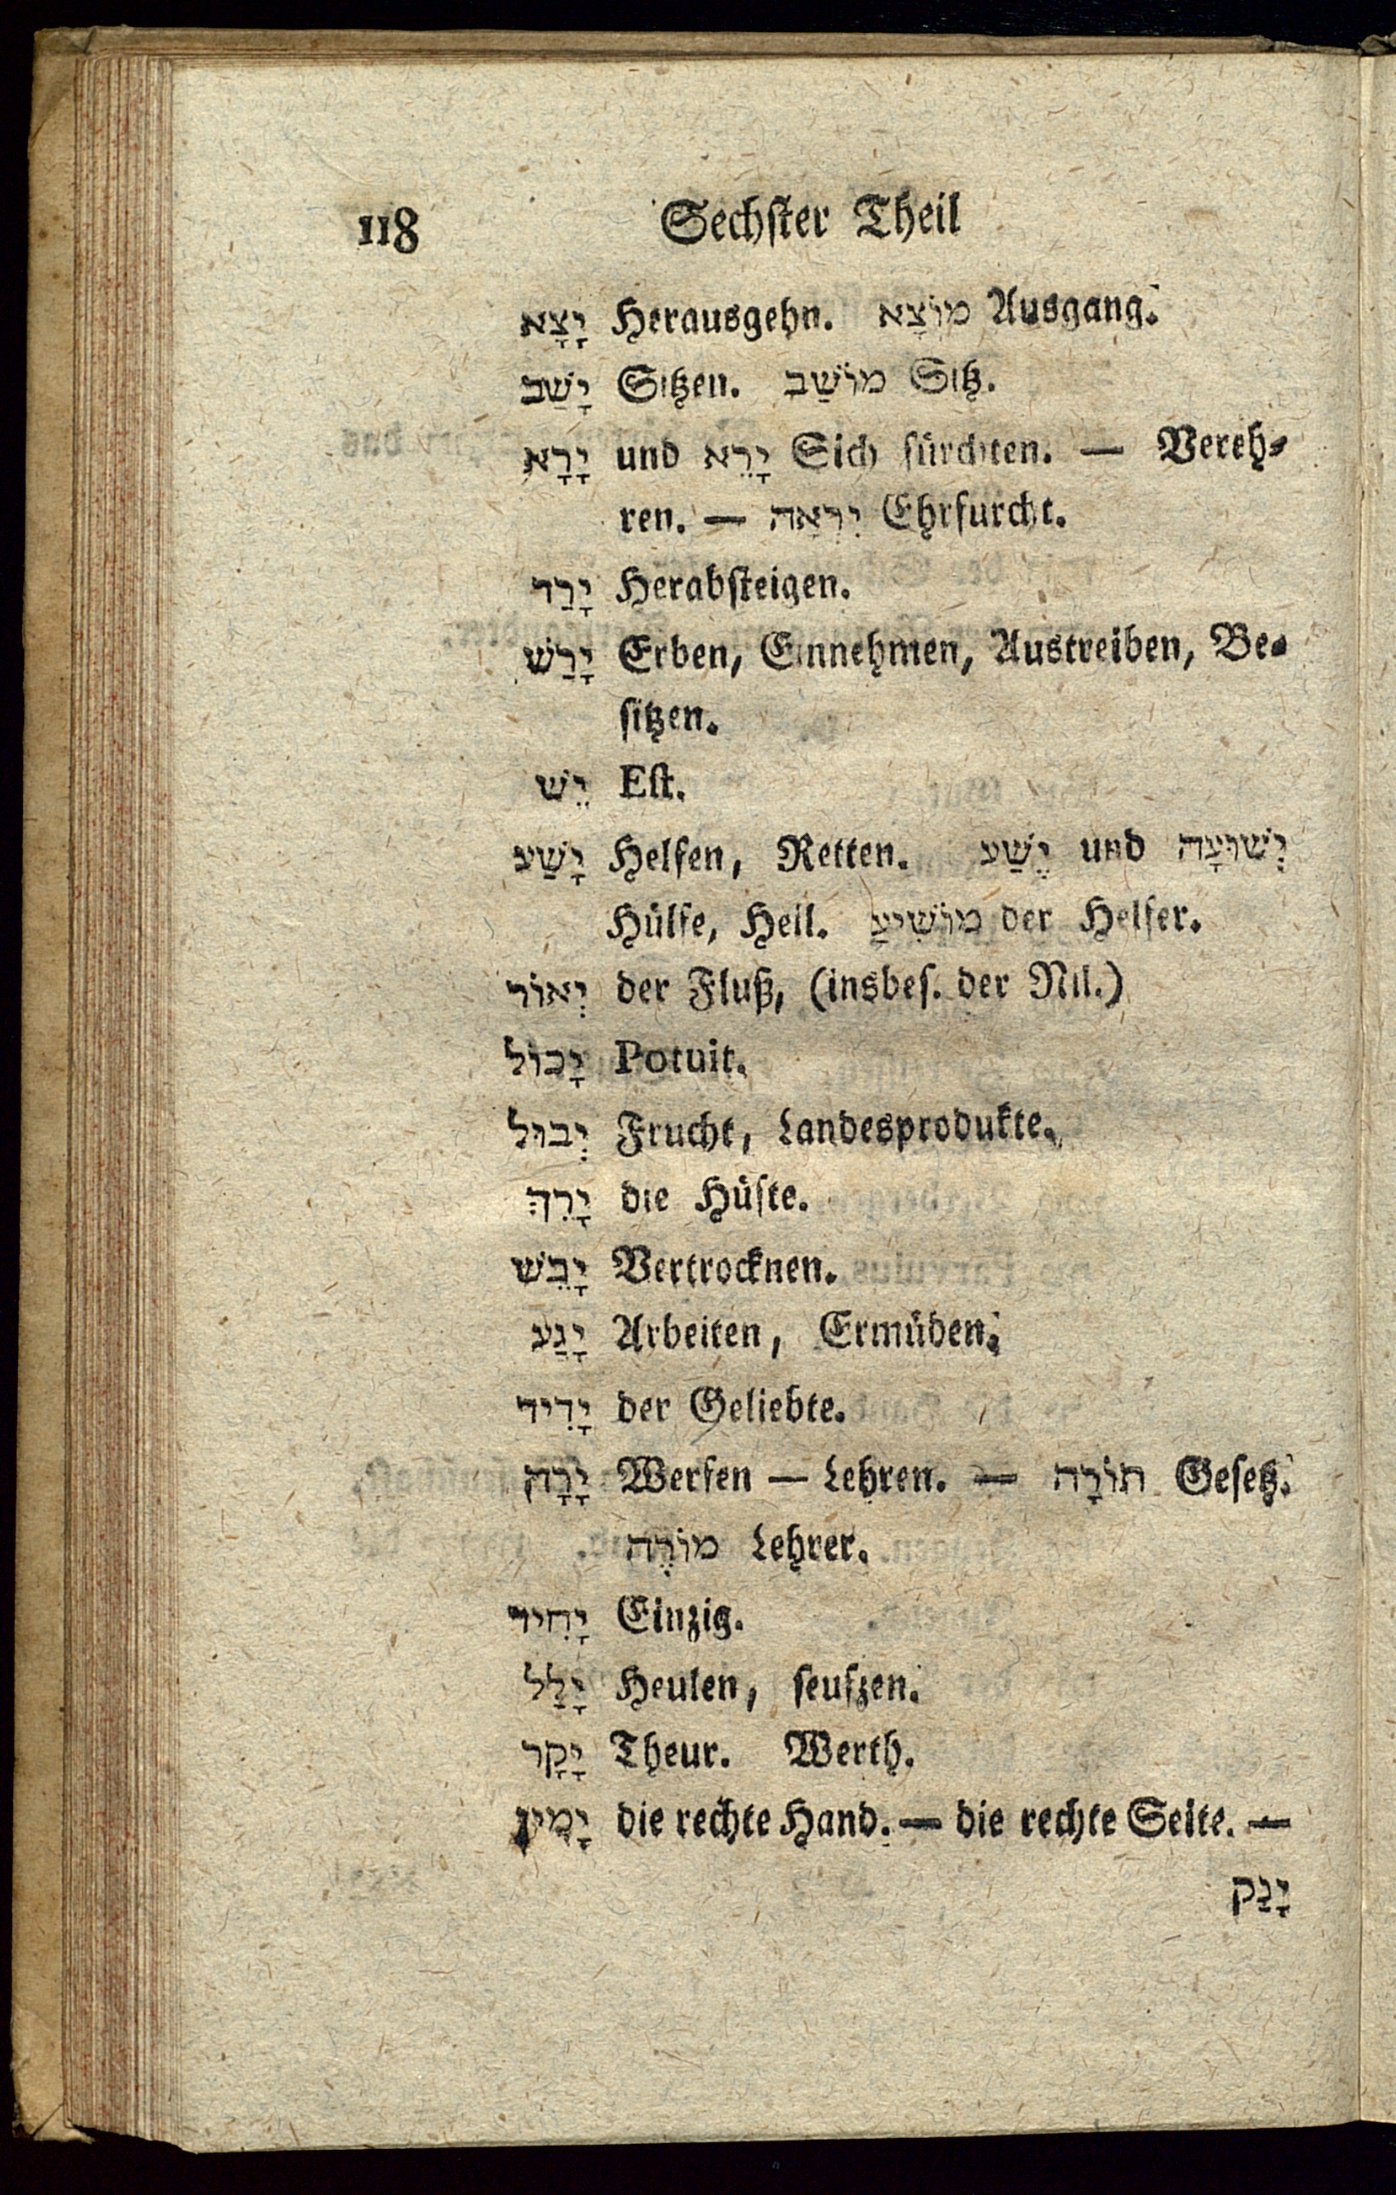 118 Sechster Theil
יָצָא Herausgehn. מוֹצָא Ausgang.
יָשַׁב Sitzen. מוֹשַׁב Sitz.
יָרָא und יָרֵא Sich fürchten. — Vereh-
ren. — יִרְאָה Ehrfurcht.
יָרַד Herabsteigen.
יָרַשׁ Erben, Einnehmen, Austreiben, Be-
sitzen.
יֵשׁ Est.
יָשַׁע Helfen, Retten. יֶשַׁע und יְשׁוּעָה
Hülfe, Heil. מוֹשִׁיעַ der Helfer.
יְאוֹר der Fluß, (insbes. der Nil.)
יָכוֹל Potuit.
יְבוּל Frucht, Landesprodukte.
יָרֵךְ die Hüfte.
יָבֵשׁ Vertrocknen.
יָגַע Arbeiten, Ermüden.
יָדִיד der Geliebte.
יָרָה Werfen — Lehren. — תוֹרָה Gesetz.
מוֹרֶה Lehrer.
יָחִיד Einzig.
יָלַל Heulen, seufzen.
יָקָר Theur. Werth.
יָמִין die rechte Hand. — die rechte Seite. —
יָנַק